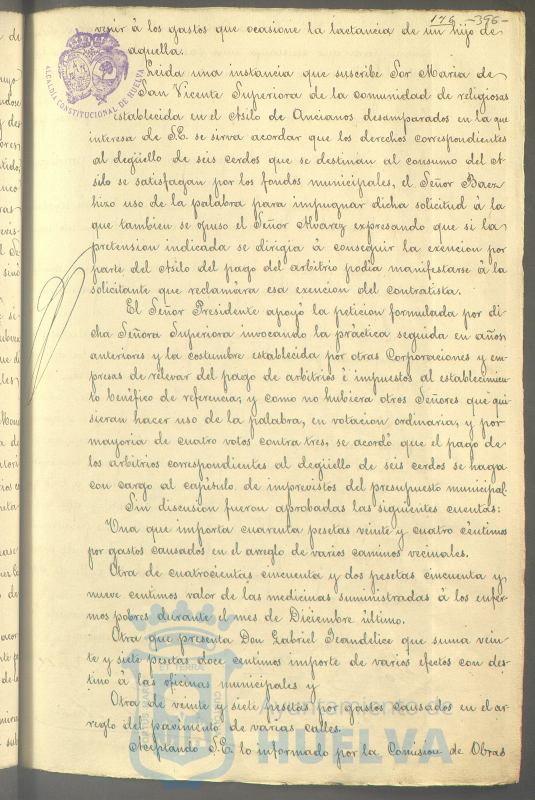 176 -396-
venir á los gastos que ocasione la lactancia de un hijo de
aquella.
Leida una instancia que suscribe Sor Maria de
San Vicente Superiora de la comunidad de religiosas
establecida en el Asilo de Ancianos desamparados en la que
interesa de S.E. se sirva acordar que los derechos correspondientes
al degüello de seis cerdos que se destinan al consumo del A
silo se satisfagan por los fondos municipales, el Señor Baez
hizo uso de la palabra para impugnar dicha solicitud á la
que tambien se opuso el Señor Alvarez expresando que si la
pretension indicada se dirigia á conseguir la exencion por
parte del Asilo del pago del arbitrio podia manifestarse á la
solicitante que reclamára esa exencion del contratista.
El Señor Presidente apoyó la peticion formulada por di
cha Señora Superiora invocando la práctica seguida en años
anteriores y la costumbre establecida por otras Corporaciones y em
presas de relevar del pago de arbitrios é impuestos al establecimien
to benéfico de referencia; y como no hubiera otros Señores que qui
sieran hacer uso de la palabra, en votacion ordinaria, y por
mayoria de cuatro votos contra tres, se acordó que el pago de
los arbitrios correspondientes al degüello de seis cerdos se haga
con cargo al capítulo de imprevistos del presupuesto municipal.
Sin discusion fueron aprobadas las siguientes cuentas:
Una que importa cuarenta pesetas veinte y cuatro céntimos
por gastos causados en el arreglo de varios caminos vecinales.
Otra de cuatrocientas cincuenta y dos pesetas cincuenta y
nueve centimos valor de las medicinas suministradas á los enfer
mos pobres durante el mes de Diciembre último.
Otra que presenta Don Gabriel que suma vein
te y siete pesetas doce centimos importe de varios efectos con des
tino á las oficinas municipales y
Otra de veinte y siete pesetas por gastos causados en el ar
reglo del pavimento de varias calles.
Aceptando S.E. lo informado por la Comision de Obras
ALCALDIA CONSTITUCIONAL DE HUELVA
Ayuntamiento de
HUELVA